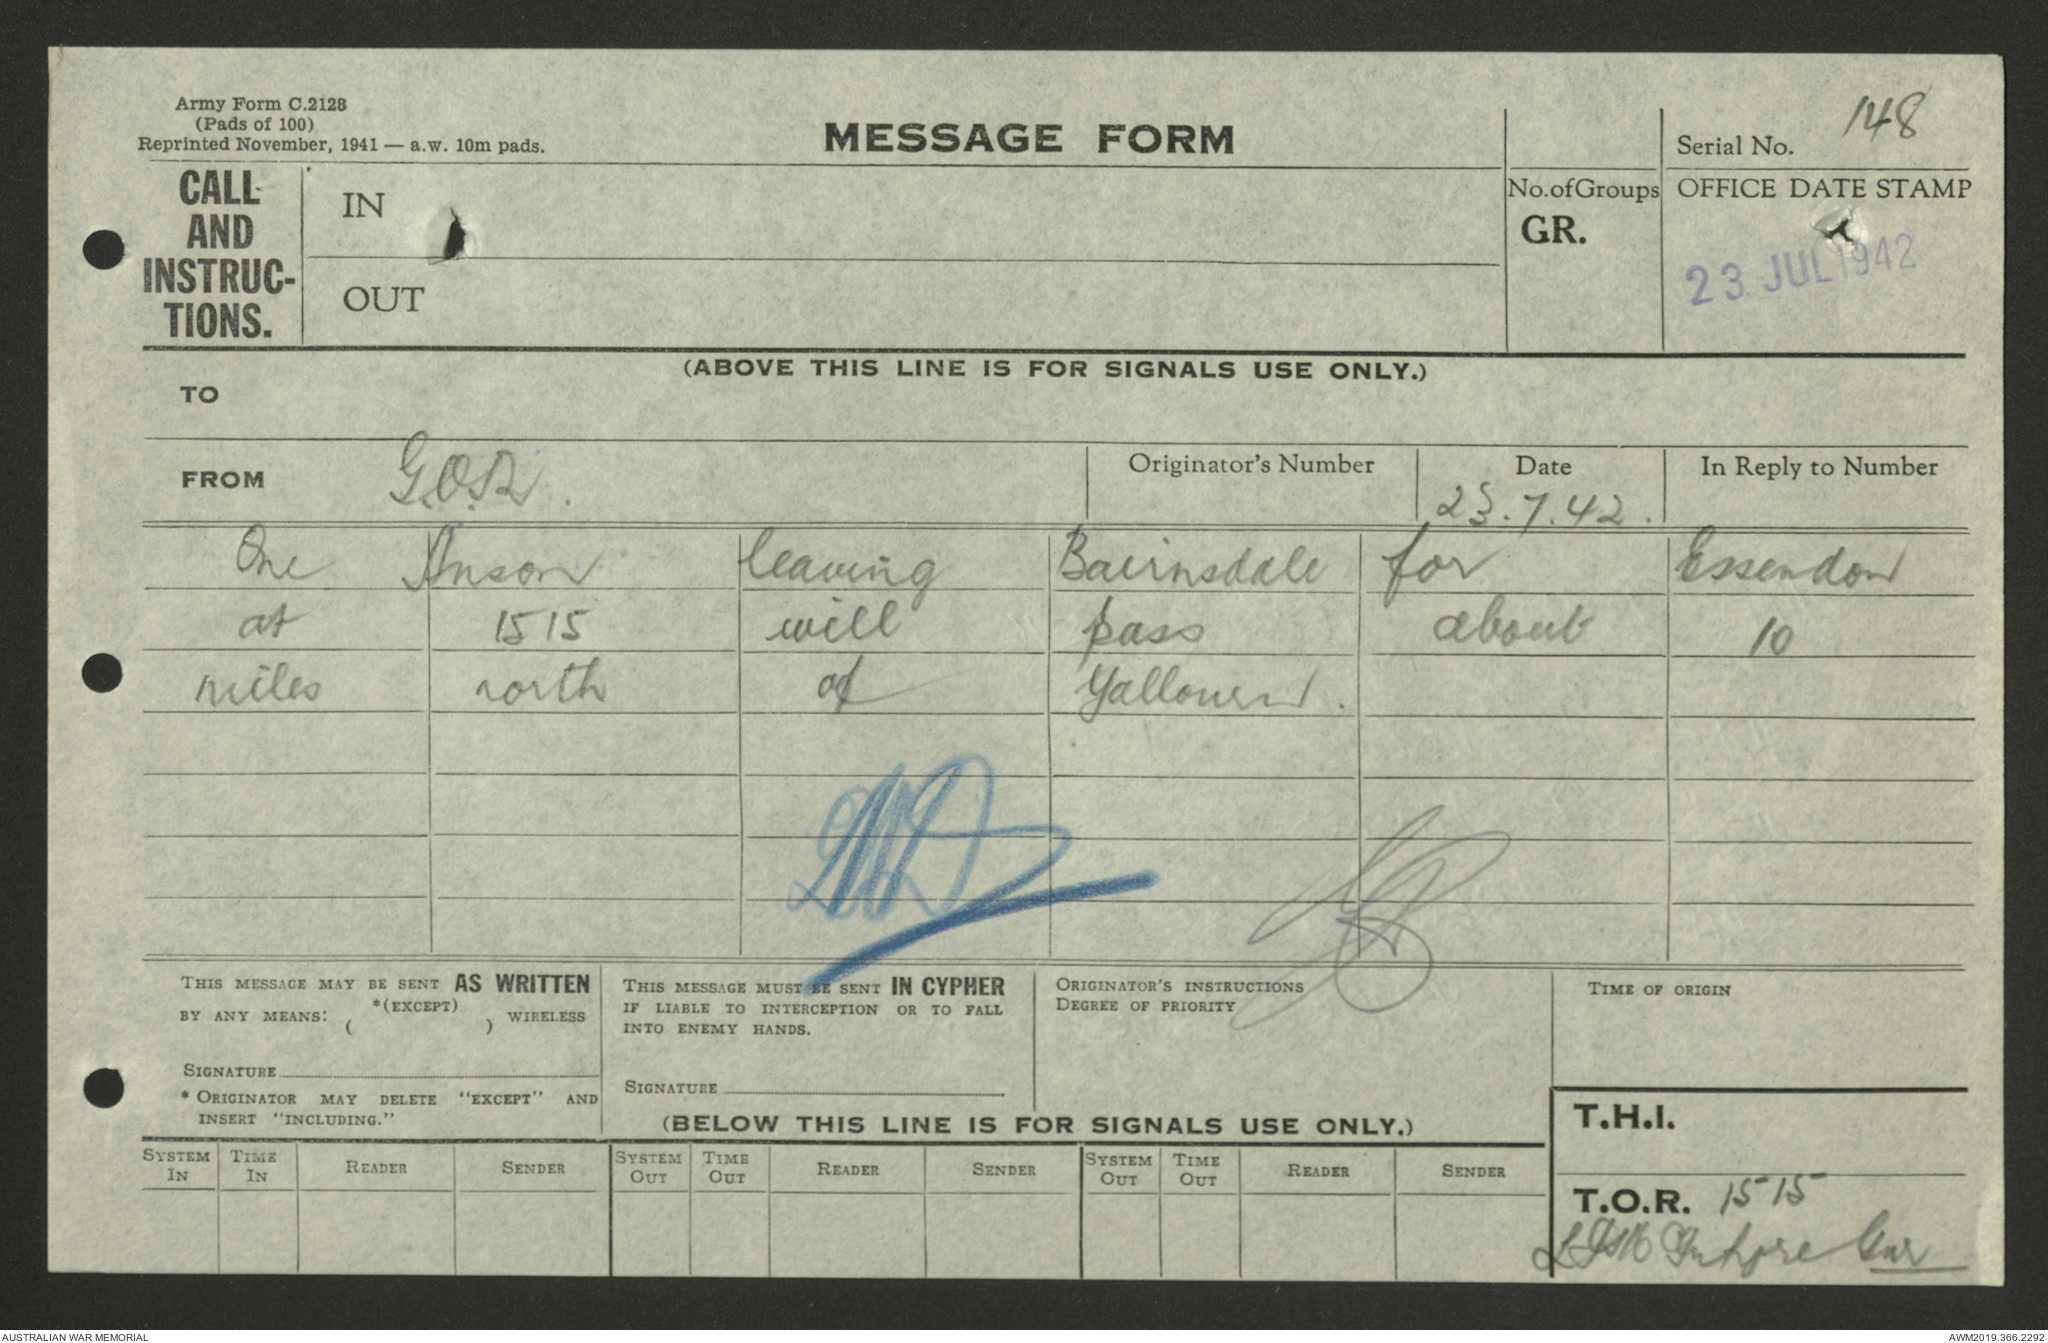 Army Form C.2128
(Pads of 100)
Reprinted November, 1941 — a.w. 10m pads.
MESSAGE FORM
Serial No. 148
CALL
AND
INSTRUC-
TIONS.
IN
OUT
No.ofGroups
GR.
OFFICE DATE STAMP
23 JUL 1942
(ABOVE THIS LINE IS FOR SIGNALS USE ONLY.)
TO
FROM G.O.R.
Originator's Number
Date
23.7.42.
In Reply to Number
One Anson leaving Bairnsdale for Essendon
at 1515 will pass about 10
miles north of Yallourn.
THIS MESSAGE MAY BE SENT AS WRITTEN
BY ANY MEANS: *(EXCEPT) WIRELESS
( )
SIGNATURE
* ORIGINATOR MAY DELETE "EXCEPT" AND
INSERT "INCLUDING."
THIS MESSAGE MUST BE SENT IN CYPHER
IF LIABLE TO INTERCEPTION OR TO FALL
INTO ENEMY HANDS.
SIGNATURE
ORIGINATOR'S INSTRUCTIONS
DEGREE OF PRIORITY
TIME OF ORIGIN
(BELOW THIS LINE IS FOR SIGNALS USE ONLY.)
T.H.I.
T.O.R. 1515
SYSTEM IN TIME IN READER SENDER SYSTEM OUT TIME OUT READER SENDER SYSTEM OUT TIME OUT READER SENDER
AUSTRALIAN WAR MEMORIAL
AWM2019.366.2292